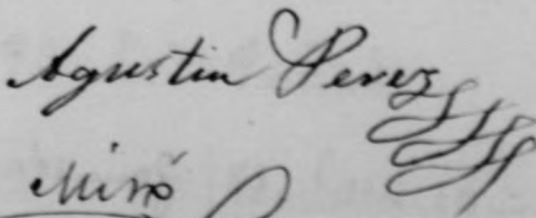 Agustin Perez
Miró